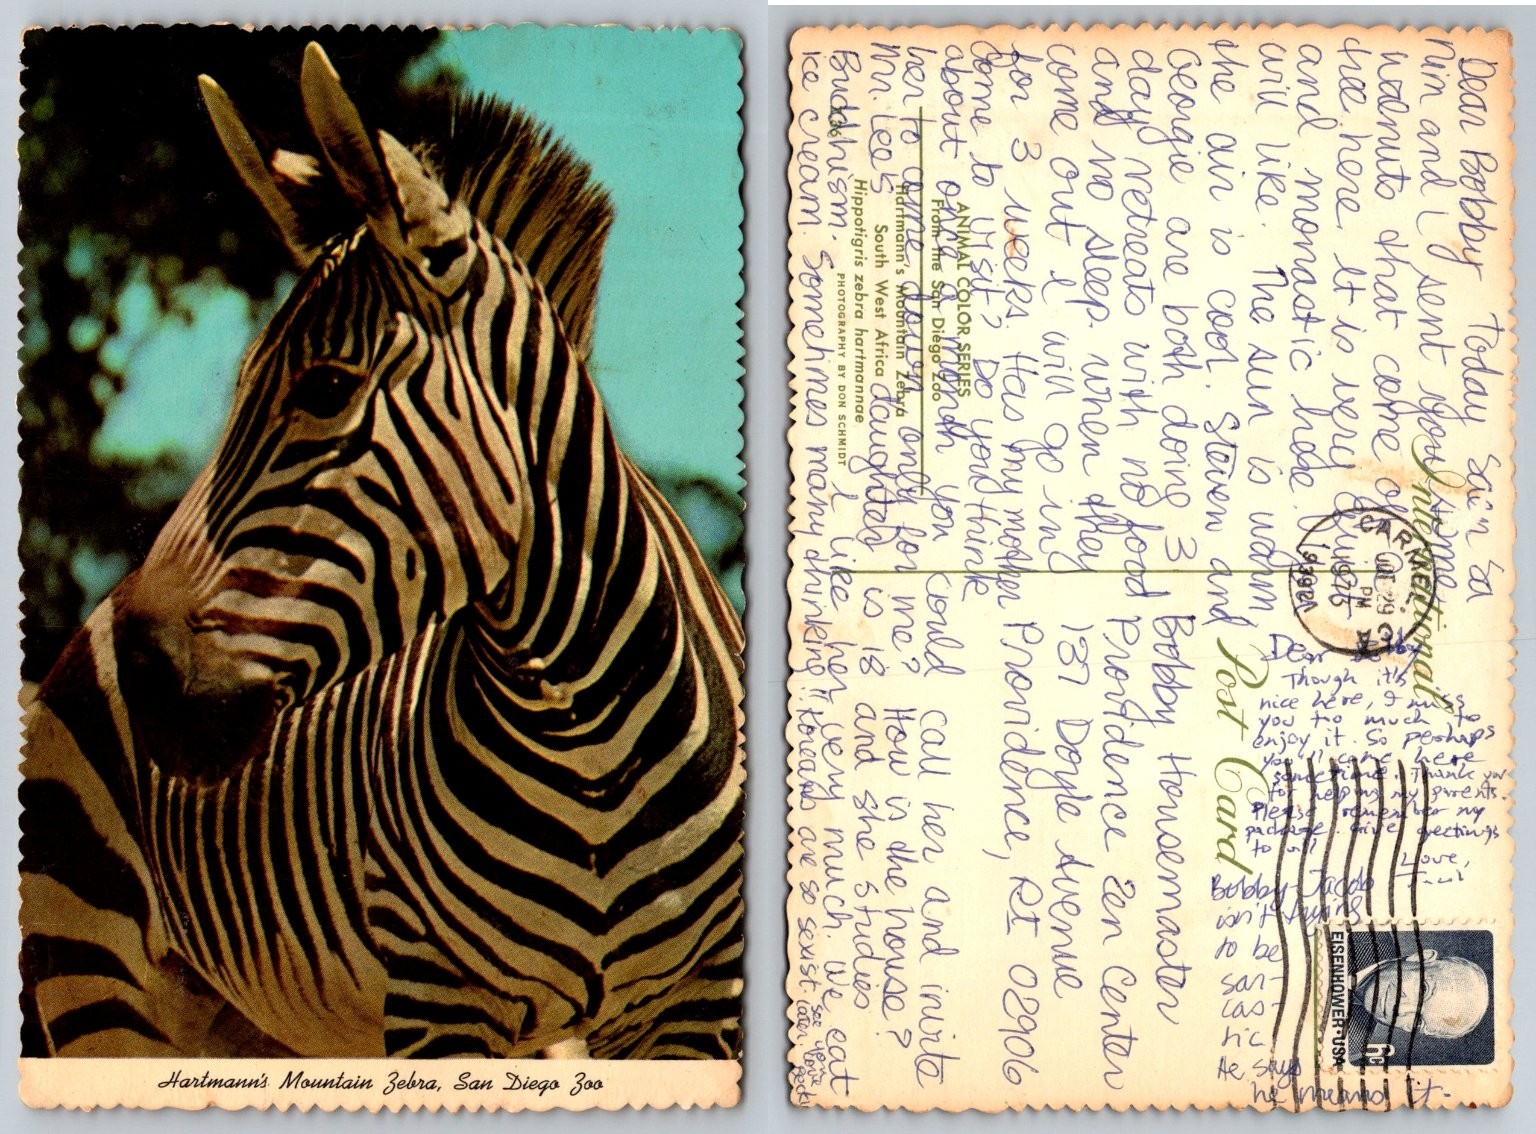 Hartmann's Mountain Zebra, San Diego Zoo
Dear Bobby Today Sain Sa
Nim and I sent you some
walnuts that come off
tree here. It is very quiet
and monastic here. I
will like. The sun is warm
the air is cool. Steven and
Georgie are both doing 3
day retreats with no food
and no sleep. When they
come out I will go in
for 3 weeks. Has my mother
come to visit? Do you think
about once a month you could call her and invite
her to come down only for me? How is the house?
Mr. Lee's daughter is 18 and she studies
Buddhism. I like her very much. We eat
ice cream. Sometimes many thinking!! Koreans are so sexist.
see you
later. love
Becki
Bobby Housemaster
Providence Zen Center
137 Doyle Avenue
Providence, RI 02906
Dear Bobby
Though it's
nice here, I miss
you too much to
enjoy it. So perhaps
you'll come here
sometime. Thank you
for helping my parents.
Please remember my
package. Give greetings
to all
Love,
Bobby- Jacob
isn't trying
to be
sar-
cas-
tic.
He says
he means it.
International
Post Card
CARMEL, CA
OCT 29
PM
1975
93921
EISENHOWER·USA
6c
ANIMAL COLOR SERIES
From the San Diego Zoo
Hartmann's Mountain Zebra
South West Africa
Hippotigris zebra hartmannae
PHOTOGRAPHY BY DON SCHMIDT